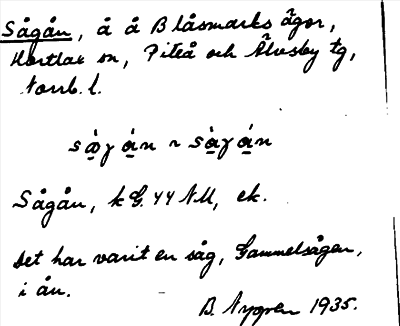 Sågån, å å Blåsmarks ägor,
Hortlax sn, Piteå och Älvsby tg,
Norrb. l.
Sågån, k G. 44 NU, ek.
Det har varit en såg, Gammelsågen,
i ån.
B. Nygren 1935.